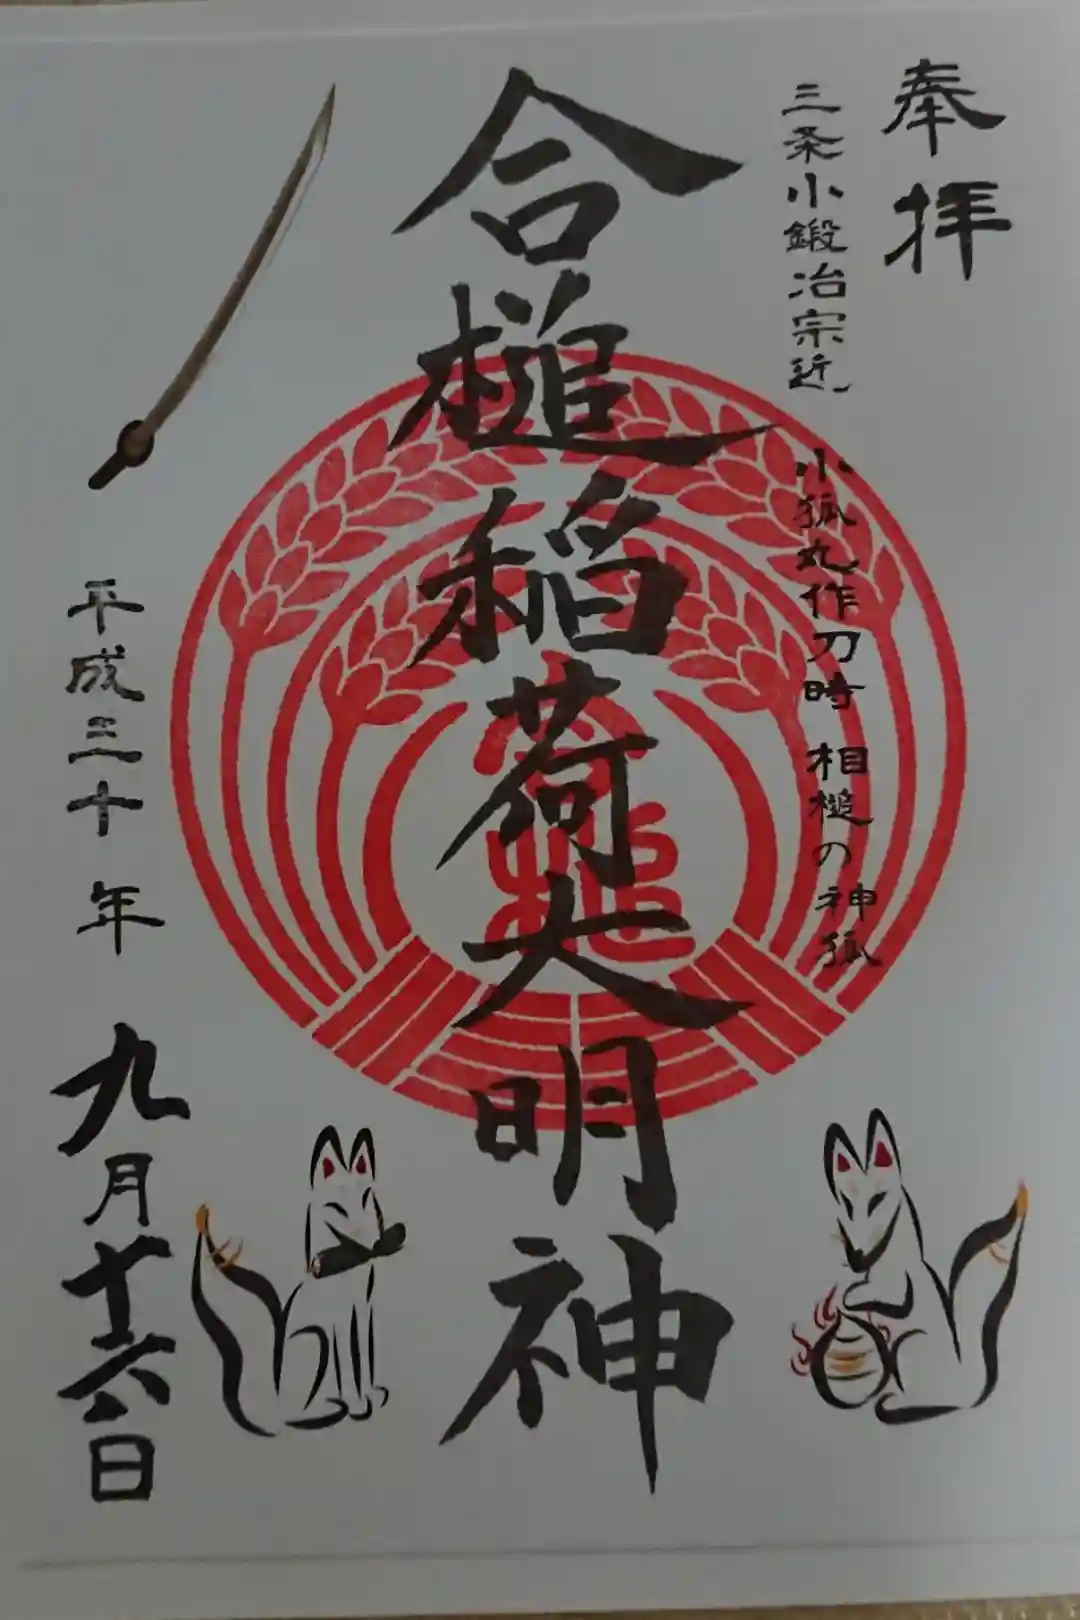 奉拝
三条小鍛冶宗近
小狐丸作刀時 相槌の神狐
合槌稲荷大明神
平成三十年 九月十六日